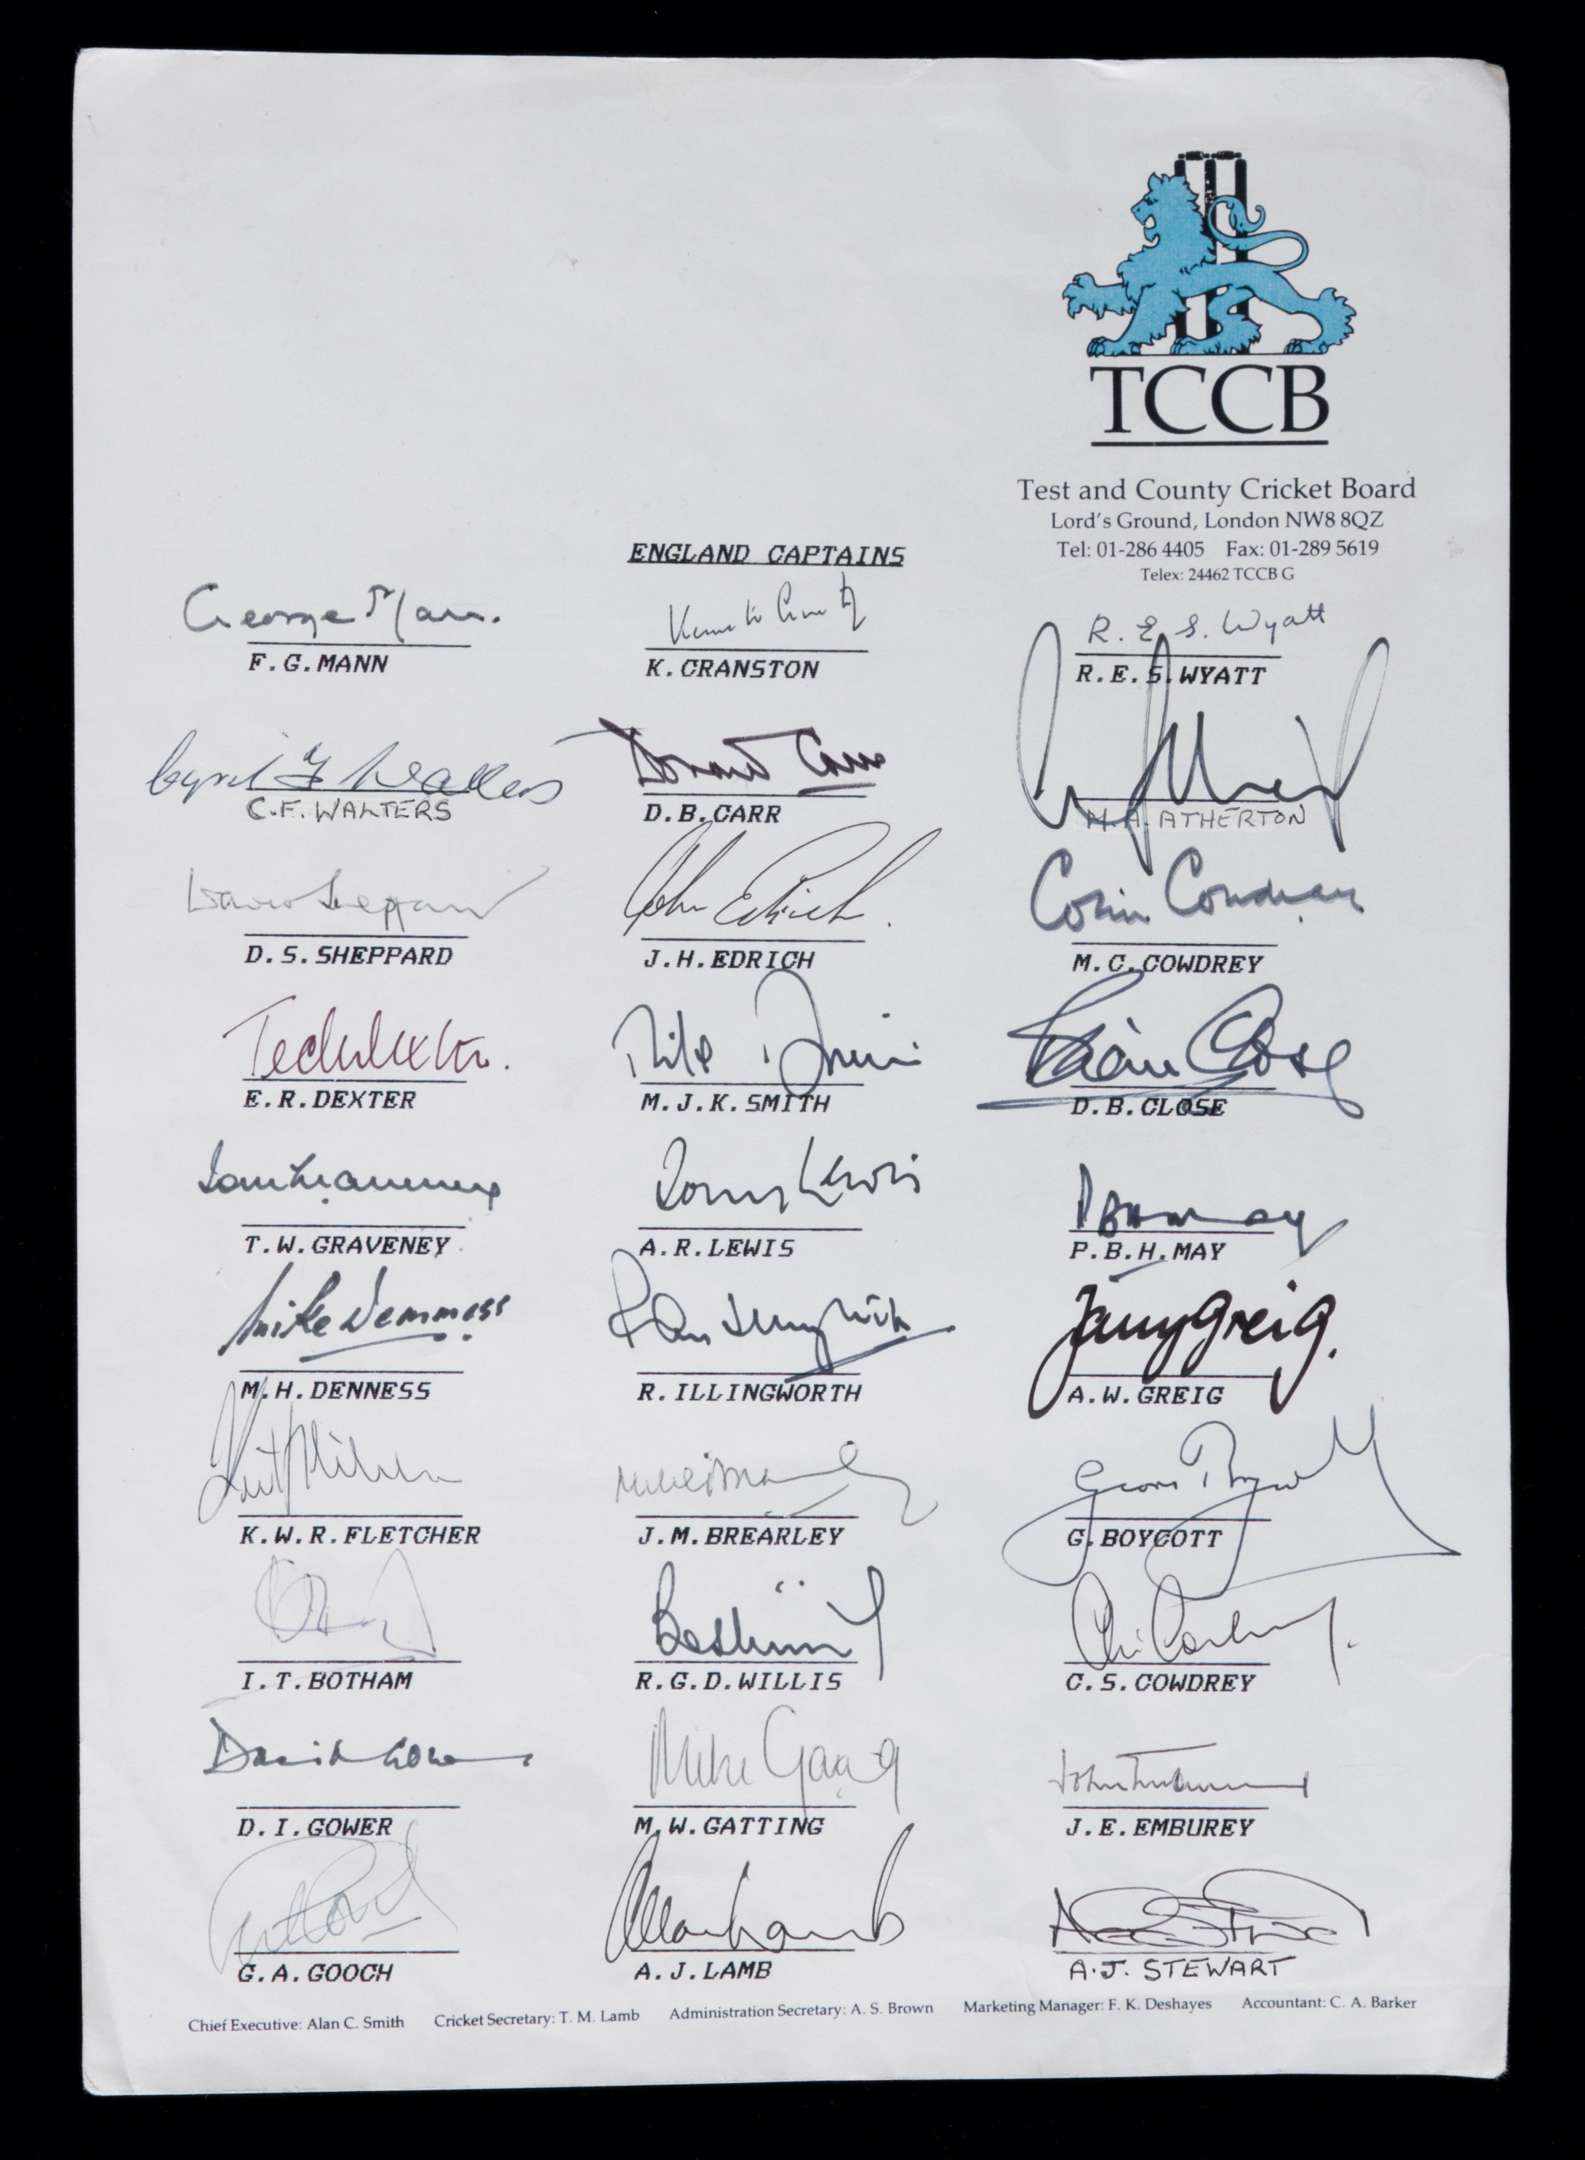 TCCB
Test and County Cricket Board
Lord's Ground, London NW8 8QZ
Tel: 01-286 4405 Fax: 01-289 5619
Telex: 24462 TCCB G
ENGLAND CAPTAINS
George Mann. R. E. S. Wyatt
F.G.MANN K.CRANSTON R.E.S.WYATT
Cyril F Walters Donald Carr
C.F. WALTERS D.B.CARR M.A. ATHERTON
David Sheppard John Edrich. Colin Cowdrey
D.S.SHEPPARD J.H.EDRICH M.C.COWDREY
Ted Dexter. Mike Brian Close
E.R.DEXTER M.J.K.SMITH D.B.CLOSE
Tony Lewis P B H May
T.W.GRAVENEY A.R.LEWIS P.B.H.MAY
Mike Denness Ray Illingworth Tony Greig.
M.H.DENNESS R.ILLINGWORTH A.W.GREIG
K.W.R.FLETCHER J.M.BREARLEY G.BOYCOTT
I.T.BOTHAM R.G.D.WILLIS C.S.COWDREY
David Gower Mike Gatting John Emburey
D.I.GOWER M.W.GATTING J.E.EMBUREY
Allan Lamb
G.A.GOOCH A.J.LAMB A.J. STEWART
Chief Executive: Alan C. Smith Cricket Secretary: T. M. Lamb Administration Secretary: A. S. Brown Marketing Manager: F. K. Deshayes Accountant: C. A. Barker